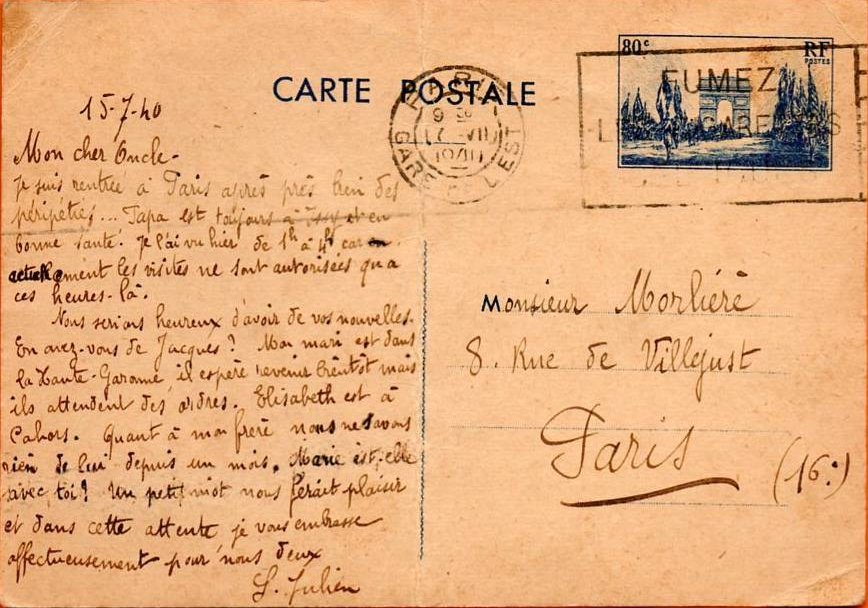 80c
RF
POSTES
CARTE POSTALE
FUMEZ
PARIS
9
17 VII
1940
GARE DE L'EST
15-7-40
Mon cher Oncle-
Je suis rentrée à Paris après près bien des
péripéties... Papa est toujours à Issy et en
bonne santé. Je l'ai vu hier de 1h à 4h car
actuellement les visites ne sont autorisées qu'à
ces heures-là.
Nous serions heureux d'avoir de vos nouvelles.
En avez-vous de Jacques? Mon mari est dans
la Haute-Garonne, il espère revenir bientôt mais
ils attendent des ordres. Elisabeth est à
Cahors. Quant à mon frère nous ne savons
rien de lui depuis un mois. Marie est-elle
avec toi? Un petit mot nous ferait plaisir
et dans cette attente je vous embrasse
affectueusement pour nous deux
S. Julien
Monsieur Morlière
8. Rue de Villejust
Paris
(16e)